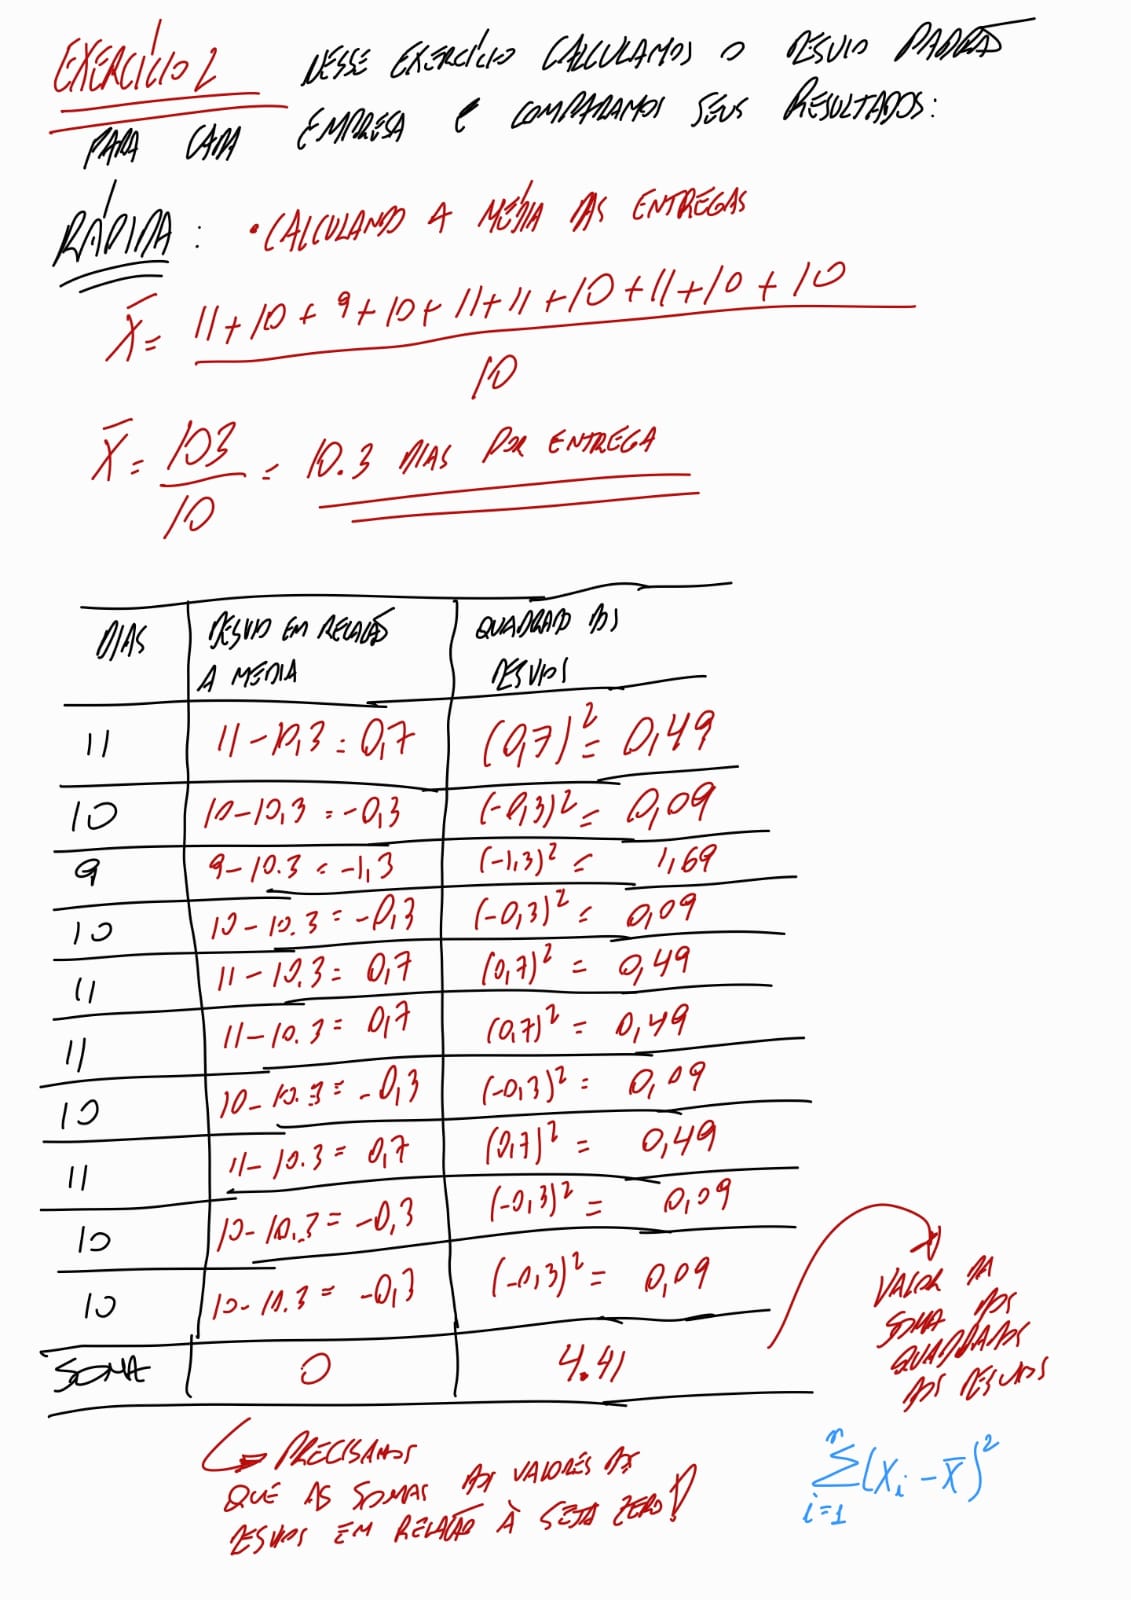 EXERCÍCIO 2 NESSE EXERCÍCIO CALCULAMOS O DESVIO PADRÃO
PARA CADA EMPRESA E COMPARAMOS SEUS RESULTADOS:
RÁPIDA: • CALCULANDO A MÉDIA DAS ENTREGAS
X̄ = 11+10+9+10+11+11+10+11+10+10
10
X̄ = 103/10 = 10.3 DIAS POR ENTREGA
DIAS DESVIO EM RELAÇÃO QUADRADO DOS
A MEDIA DESVIOS
11 11-10,3 = 0,7 (0,7)² = 0,49
10 10-10,3 = -0,3 (-0,3)² = 0,09
9 9-10.3 = -1,3 (-1,3)² = 1,69
10 10-10.3 = -0,3 (-0,3)² = 0,09
11 11-10.3 = 0,7 (0,7)² = 0,49
11 11-10.3 = 0,7 (0,7)² = 0,49
10 10-10.3 = -0,3 (-0,3)² = 0,09
11 11-10.3 = 0,7 (0,7)² = 0,49
10 10-10.3 = -0,3 (-0,3)² = 0,09
10 10-10.3 = -0,3 (-0,3)² = 0,09
SOMA 0 4.41
VALOR DA
SOMA DOS
QUADRADOS
DOS DESVIOS
PRECISAMOS
QUE AS SOMAS DOS VALORES DOS
DESVIOS EM RELAÇÃO À SEJA ZERO!
n
∑(Xi - X̄)²
i=1